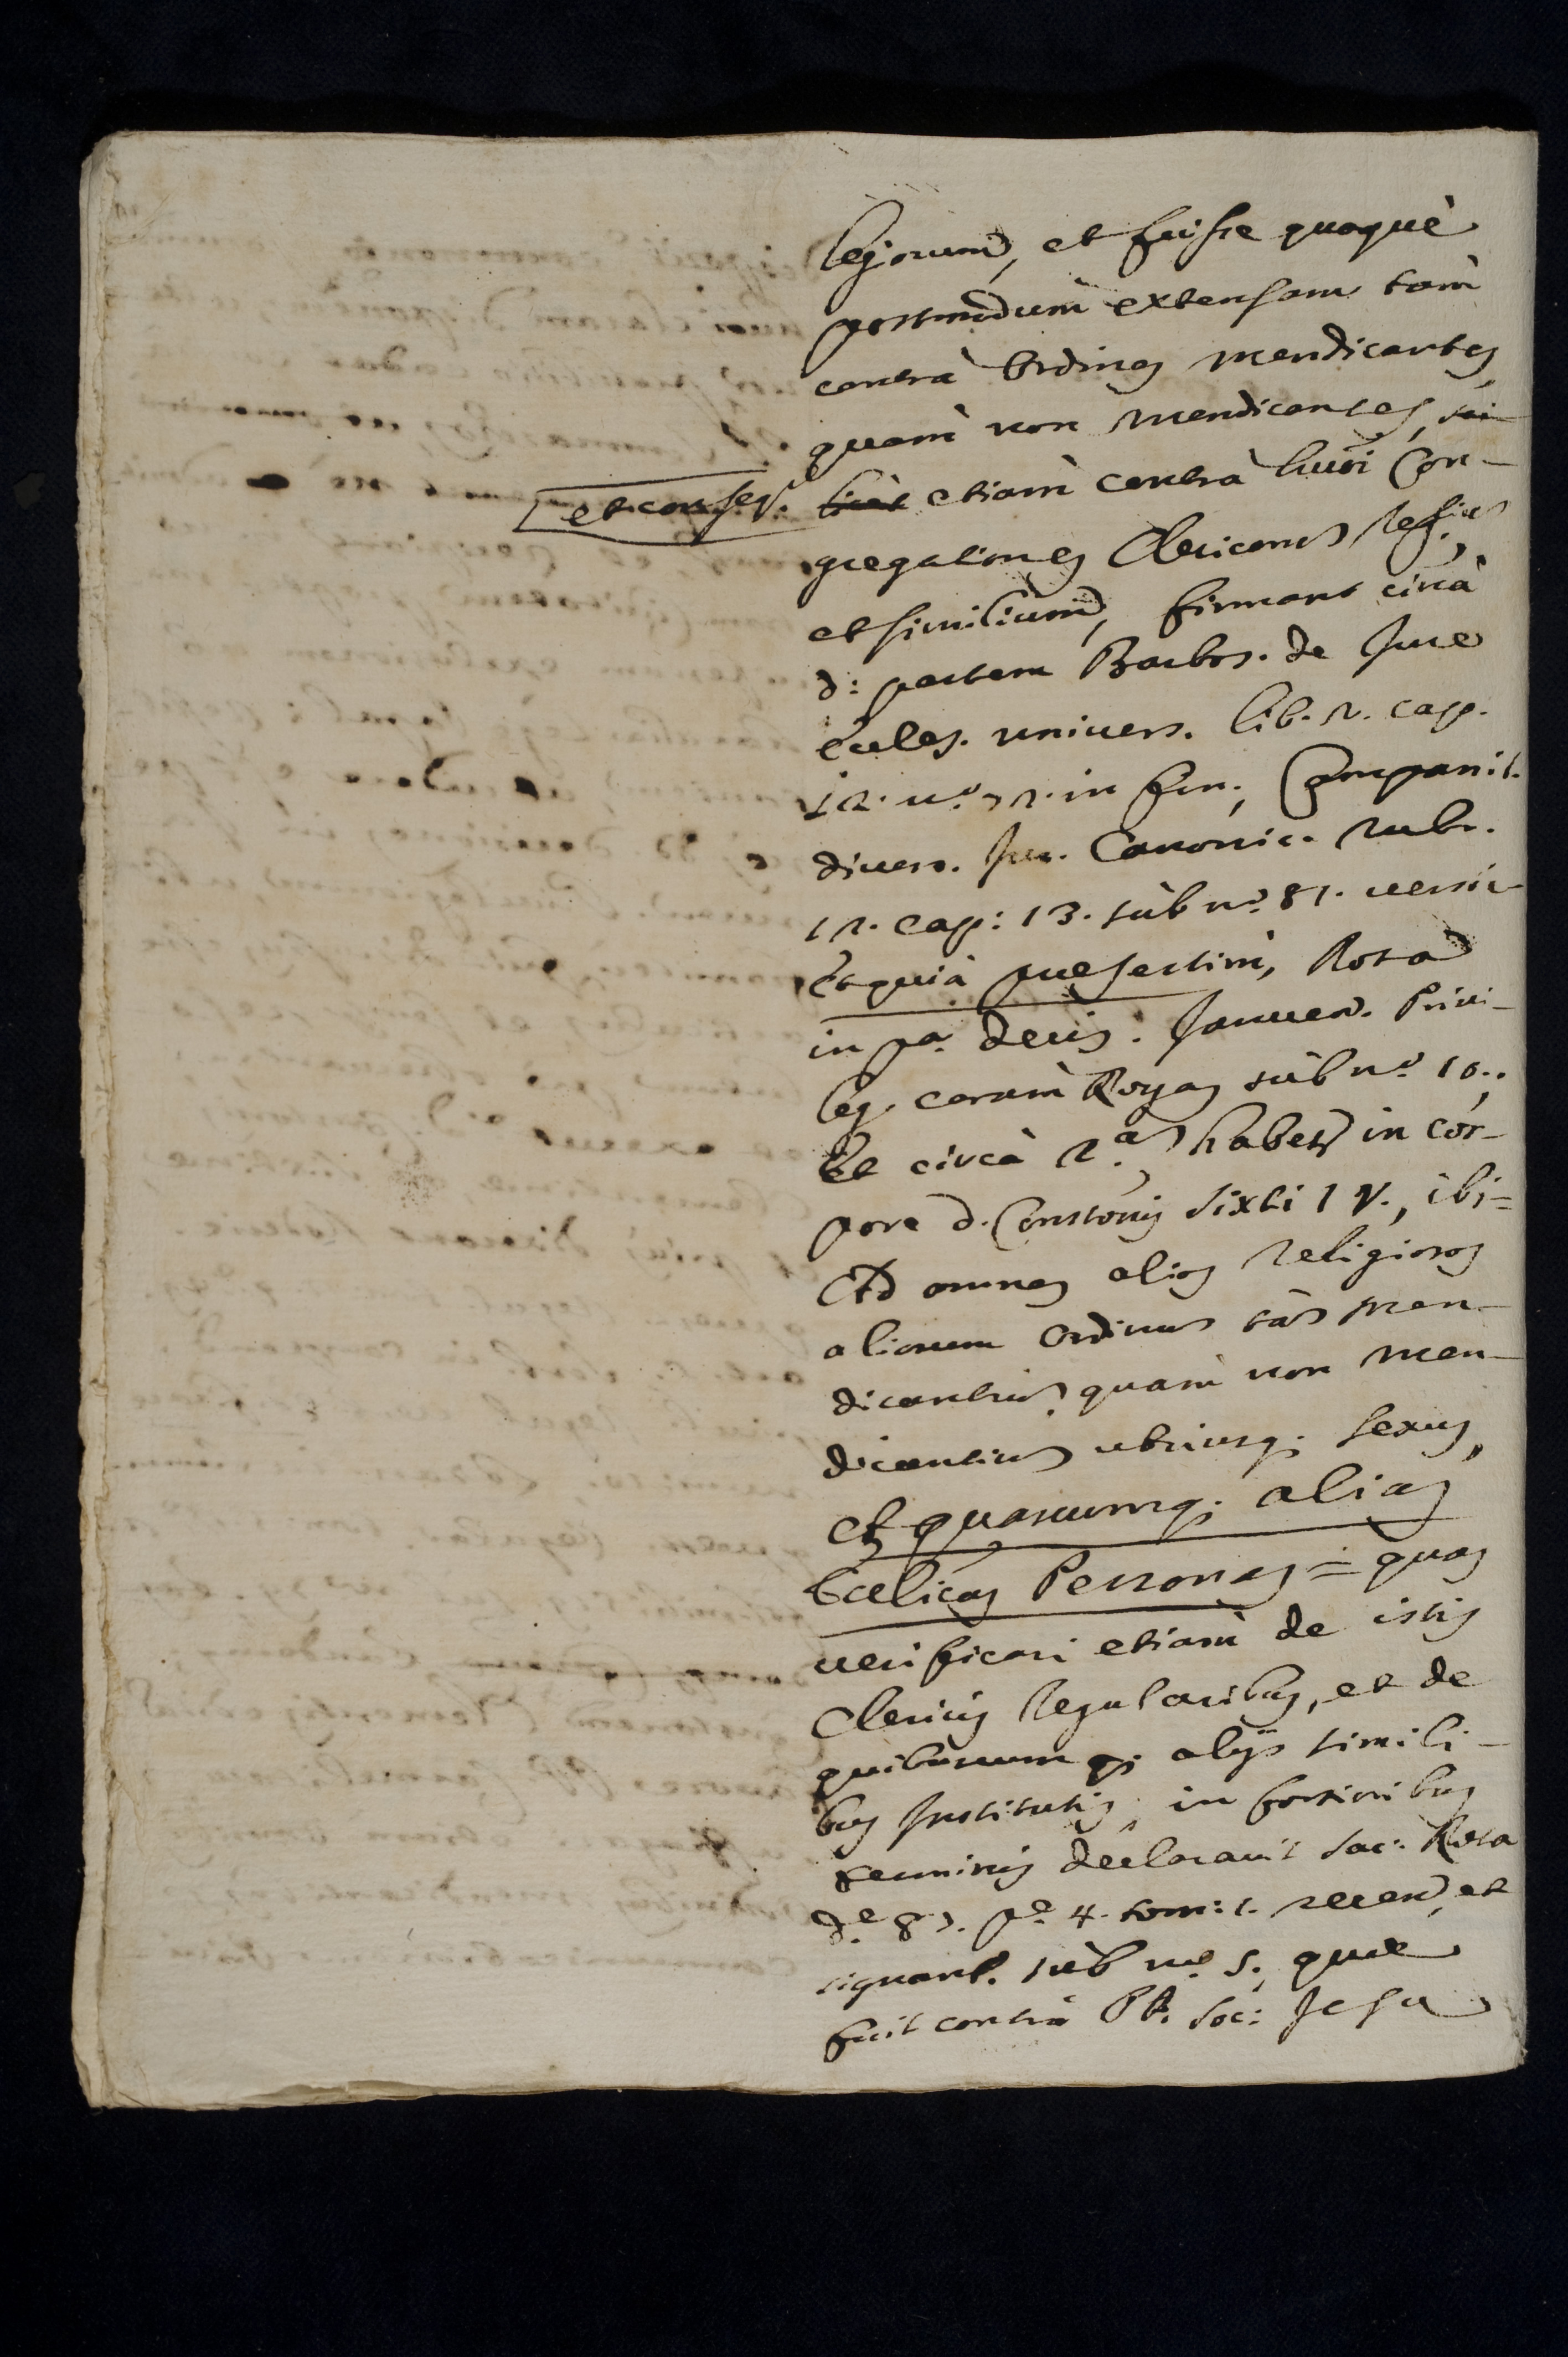 legiorum, et fuisse quoque
postmodum extensam tam
contra Ordines mendicantes,
quam non mendicantes,
et conseq.r etiam contra huiõi Con-
gregationes Clericorum Reg.ium
et similium, firmant circa
d: partem Barbos. de Jure
Eccles. univers. lib. 2. cap.
12. n.o in fin., Companil.
divers. Jur. Canonic. rubr.
12. cap: 13. sub n.o 81. versic
Et quia praesertim, Rota
in p.a decis. Januen. Privi-
leg. coram Royas sub n.o 10.,
Et circa 2.am habetr in cor-
pore d. Constonis Sixti IV., ibi=
Ad omnes alios Religiosos
aliorum Ordinum tam men-
dicantium, quam non men-
dicantium utriusq; sexus,
Et quascumq; alias
Eccl.icas Personas = quas
verificari etiam de istis
Clericis Regularibus, et de
quibuscumq; alijs simili-
bus Institutis, in fortioribus
terminis declaravit Sac: Rota
d.e 87. p.e 4. tom: 1. recen, et
signant. sub n.o 5., quae
fuit contra PP. Soc: Jesu